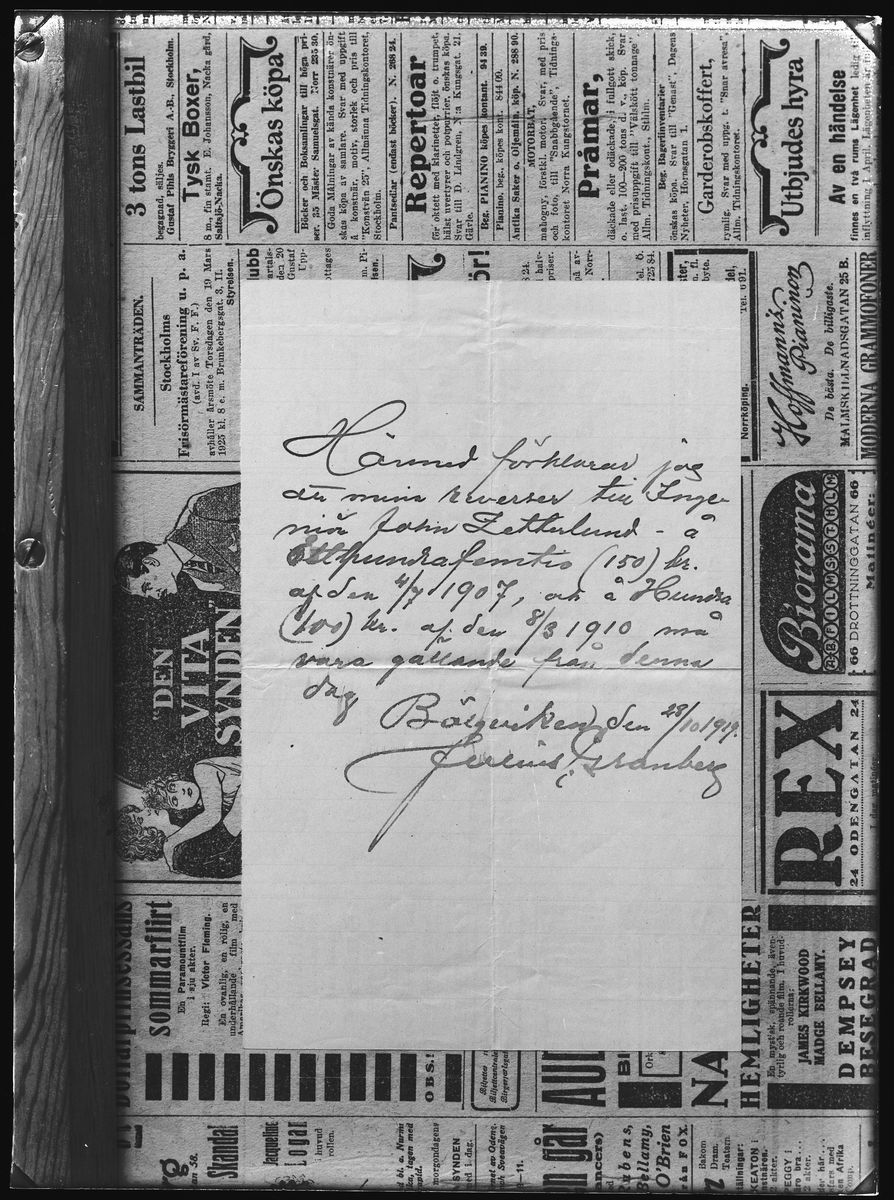 Härmed förklarar jag
att mina reverser till Inge-
niör John Zetterlund - å
Etthundrafemtio (150) kr.
af den 4/7 1907, och å Hundra
(100) kr. af den 8/3 1910 må
vara gällande från denna
dag
den 28/10 1919.
Julius Granberg
3 tons Lastbil
begagnad, säljes.
Gustaf Pihls Bryggeri A.-B., Stockholm.
Tysk Boxer,
8 m., fin stamt. E. Johansson, Nacka gård,
Saltsjö-Nacka.
Önskas köpa
Böcker och Boksamlingar till höga pri-
ser. 35 Mäster Samuelsgat. Norr 235 30.
Goda Målningar av kända konstnärer ön-
skas köpa av samlare. Svar med uppgift
å konstnär, motiv, storlek och pris till
"Konstvän 25", Allmänna Tidningskontoret,
Stockholm.
Partisedlar (endast böcker). N. 268 24.
Repertoar
för oktett med klarinetter, flöjt o. trumpet,
hälst uvertyrer och potpurrier, önskas köpa.
Svar till D. Lundgren, N:a Kungsgat. 21,
Gävle.
Beg. PIANINO köpes kontant. 94 39.
Pianino, beg., köpes kont. 844 09.
Antika Saker o. Oljemåln. köp. N. 288 90.
MOTORBÅT,
mahogny, förstkl. motor. Svar, med pris
och foto, till "Snabbgående", Tidnings-
kontoret Norra Kungstornet.
Pråmar,
däckade eller odäckade, i fullgott skick,
o. last. 100—200 tons d. v., köp. Svar
med prisuppgift till "Välskött tonnage"
Allm. Tidningskont., Sthlm.
Beg. Bageriinventarier
önskas köpa. Svar till "Genast", Dagens
Nyheter, Hornsgatan 1.
Garderobskoffert,
rymlig. Svar med uppg. t. "Snar avresa",
Allm. Tidningskontoret.
Utbjudes hyra
Av en händelse
finnes en två rums Lägenhet ledig
inflyttning 1 April. Lägenheten är
SAMMANTRÄDEN.
Stockholms
Frisörmästareförening u. p. a.
(avd. I av Sv. F. F.)
avhåller årsmöte Torsdagen den 19 Mars
1925 kl. 8 e. m. Brunkebergsgat. 3, II.
Styrelsen.
Norrköping.
Tel. 6 91.
Hoffmann's
Pianinon
De bästa. De billigaste.
MALMSKILLNADSGATAN 25 B.
MODERNA GRAMMOFONER
DEN
VITA
SYNDEN
Biorama
66 DROTTNINGGATAN 66
Matinéer:
REX
24 ODENGATAN 24
sommarflirt
En Paramountfilm
i sju akter.
Regi: Victor Fleming.
En ovanlig, en rolig, en
underhållande film med
OBS.!
HEMLIGHETER
En mystisk, spännande, även-
tyrlig och roande film. I huvud-
rollerna:
JAMES KIRKWOOD
MADGE BELLAMY.
DEMPSEY
BESEGRAD
Skandal
Jacqueline
Logan
i huvud
rollen.
SYNDEN
går
Bellamy,
O'Brien
från FOX.